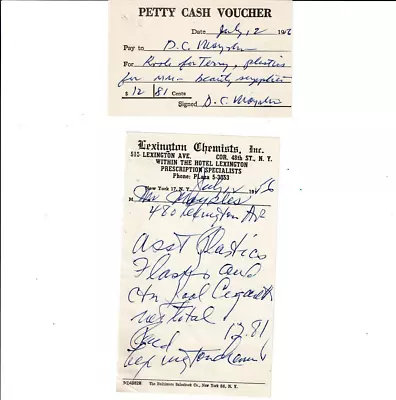 PETTY CASH VOUCHER
Date July 12 19
Pay to D.C. Maysles
For for Terry, plastics
for MM - beauty supplies
$ 12 81 Cents
Signed D.C. Maysles
Lexington Chemists, Inc.
515 LEXINGTON AVE. COR. 48th ST., N. Y.
WITHIN THE HOTEL LEXINGTON
PRESCRIPTION SPECIALISTS
Phone: PLaza 5-3053
New York 17, N.Y. July 12 1956
M Mr Maysles
480 Lexington Ave
asst Plastics
and
ctn Kool
total
Paid 12.81
Lexington Chemist
The Baltimore Salesbook Co., New York 50, N. Y.